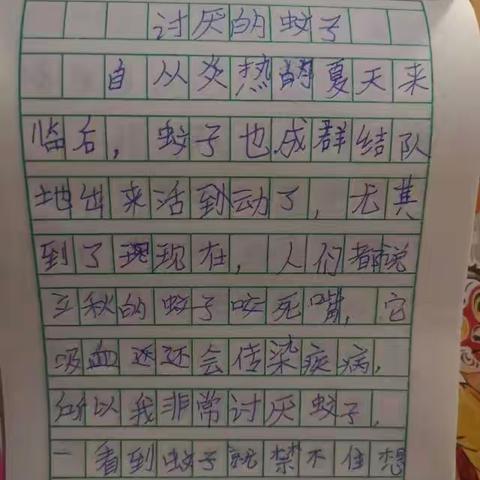 讨厌的蚊子
自从炎热的夏天来
临后，蚊子也成群结队
地出来活到动了，尤其
到了现在，人们都说
立秋的蚊子咬死嘴，它
吸血还会传染疾病，
所以我非常讨厌蚊子，
一看到蚊子就禁不住想